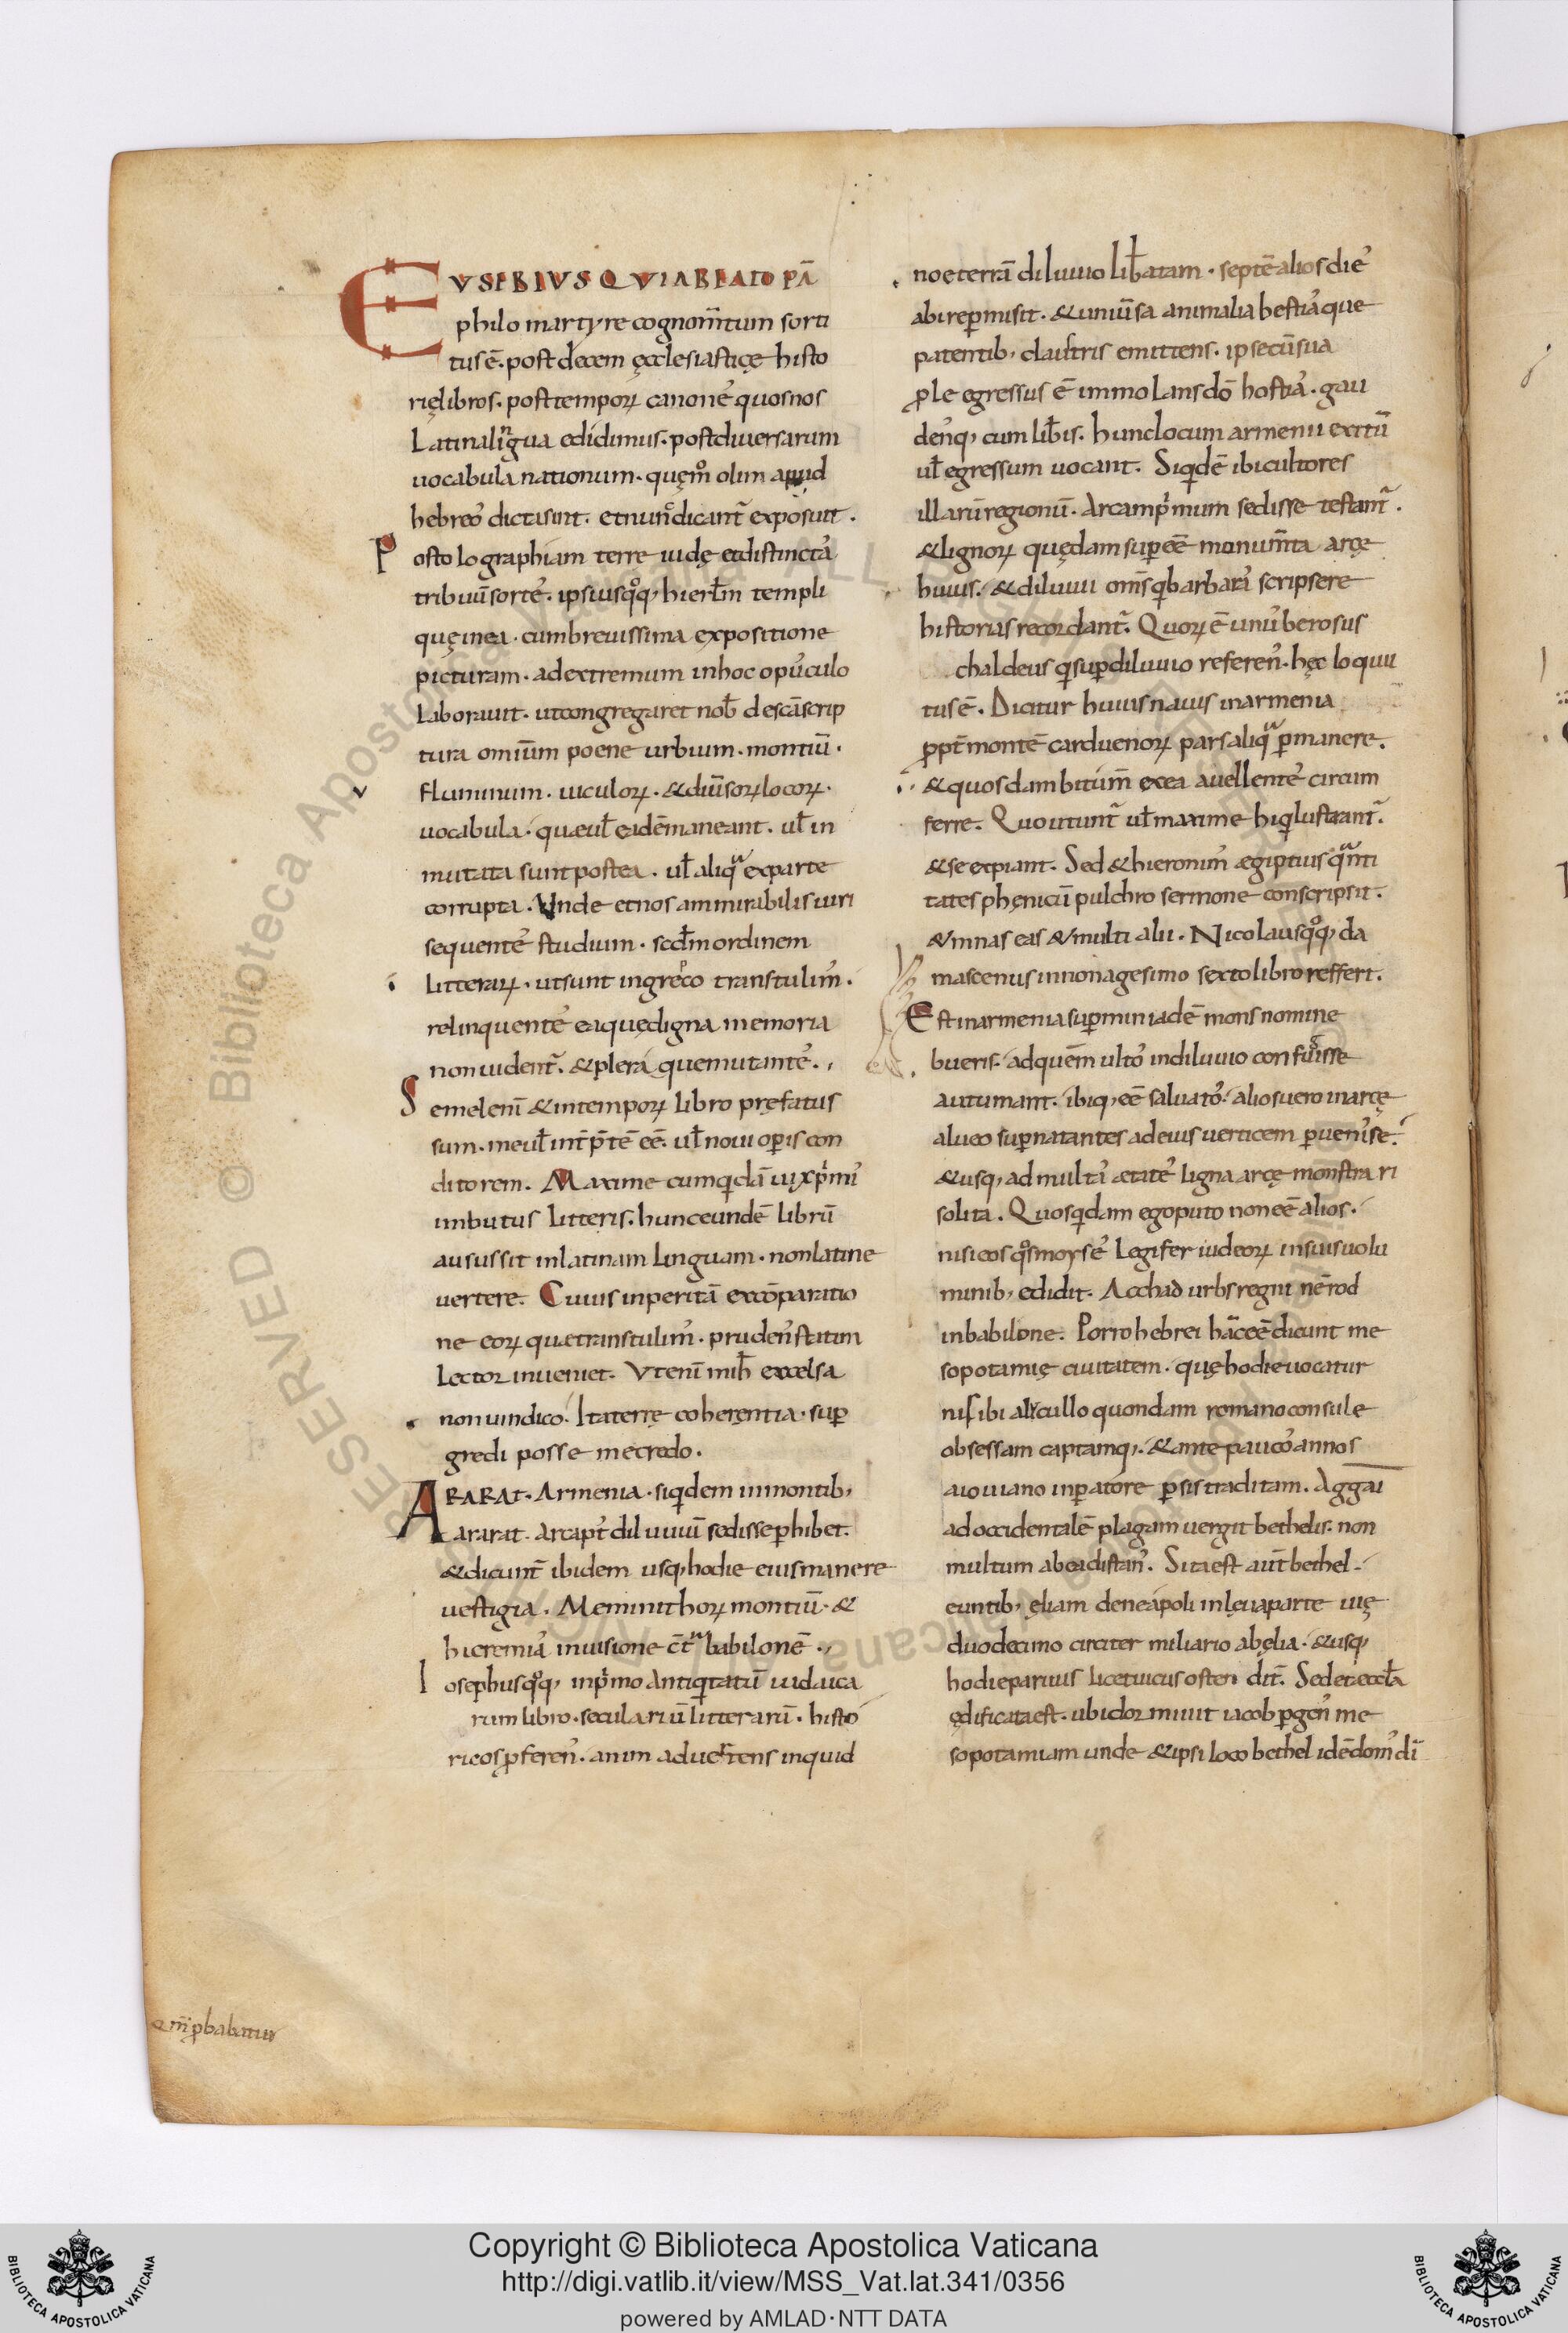 EVSEBIVS QVI A BEATO PĀ
philo martyre cognom̄tum sorti
tus ē. post decem ęcclesiasticę histo
rię libros. post temporꝝ canone᷒ quos nos
Latina lingua edidimus. post diuersarum
uocabula nationum. quęm̊ olim apud
hebreo᷒ dicta sint. et nunc dicant̄ exposuit.
Post olographiam terrę iudę et distincta᷒
tribuū sorte᷒. ipsiusq̊q, hierƚm templi
quę in ea. cum breuissima expositione
picturam. ad extremum in hoc opu᷒culo
Laborauit. ut congregaret nob̄ de scā scrip
tura omium poene urbium. montiū.
Fluminum. uiculoꝝ. & diūsoꝝ locoꝝ.
uocabula. quæ uƚ eadē maneant. uƚ in
mutata sunt postea. uƚ aliqua ex parte
corrupta. Vnde et nos ammirabilis uiri
sequente᷒ studium. scd̄m ordinem
Litteraꝝ. ut sunt in greco transtulim᷒.
relinquente᷒ ea quę digna memoria
non uident̄. & plera que mutante᷒.,
Semel enī & in temporꝝ libro pręfatus
sum. me uƚ int̄p̄tē eē. uƚ noui op̄is con
ditorem. Maxime cum qidā uix p̄mi᷒
imbutus Litteris. hunc eundē librū
ausus sit in latinam linguam. non latine
uertere. Cuius inperitiā ex cōparatio
ne eoꝝ quæ transtulim᷒. pruden᷒ statim
Lector inueniet. Vt enī mih̄ excelsa
non uindico. Ita terrę coherentia. sup̄
gredi posse me credo.
ARARAT. Armenia. siqidem in montib,
ararat. arca pt̄ diluuiū sedisse phibet̄.
& dicunt̄ ibidem usq, hodie eius manere
uestigia. Meminit hoꝝ montiū. &
hieremia᷒ in uisione ct̄ra babilonē.,
Iosephus q̊q, in p̄mo Antiqitatū iudaica
rum libro. seculariū litterarū. histo
ricos ꝓferen᷒. anim aduertens inquid
noe terrā diluuio lib̄atam. septē alios die᷒
abire ꝑmisit. & uniūsa animalia bestia᷒que
patentib, claustris emittens. ipse cū sua
ꝓle egressus ē immolans dō hostia᷒. gau
den᷒q, cum lib̄is. hunc locum armenii exitū
uƚ egressum uocant. Siqidē ibi cultores
illarū regionū. Arcam p̄mum sedisse testant̄.
& lignoꝝ quędam sup̄eē monum̄ta arcę
huius. & diluuii om̄s q barbara᷒ scripsere
historias recordant̄. Quoꝝ ē unu᷒ berosus
chaldeus q sup̄ diluuio referen᷒. hęc loquu
tus ē. Dicitur huius nauis in armenia
ꝓpt̄ montē carduenoꝝ pars aliqua ꝑmanere.
& quosdam bitum̄ ex ea auellente᷒ circum
ferre. Quo utunt̄ uƚ maxime hi q lustrant̄.
& se expiant. Sed & hieronim᷒ ægiptius q anti
tates phęnicū pulchro sermone conscripsit.
& mnaseas & multi alii. Nicolaus q̊q, da
mascenus in nonagesimo sexto libro reffert.
Est in armenia sup̄ miniadē mons nomine
bueris. ad quem multo᷒ in diluuio confugisse
autumant. ibiq, eē saluato᷒. alios uero in arcę
alueo sup̄natantes ad eius uerticem ꝑuenisse.
& usq, ad multa᷒ ætate᷒ ligna arcę monstrari
solita. Quos qidam ego puto non eē alios.
nisi eos q̊s moyse᷒ Legifer iudeoꝝ in suis uolu
minib, edidit. Acchad urbs regni nērod
in babilone. Porro hebrei hāc eē dicunt me
sopotamię ciuitatem. quę hodie uocatur
nisibi a lucullo quondam romano consule
obsessam captamq,. & ante pauco᷒ annos
a iouiano inꝑatore ꝑsis traditam. Aggai
ad occidentalē plagam uergit bethelis. non
multum ab ea distan᷒. Sita est aut̄ bethel.
euntib, ęliam de neapoli in lęua parte uię
duodecimo circiter miliario ab ęlia. & usq,
hodie paruus licet uicus ostendit̄. Sed et æccƚa
ędificata est. ubi dormiuit iacob ꝑgen᷒ me
sopotamiam unde & ipsi loco bethel idē dom᷒ dī
Copyright © Biblioteca Apostolica Vaticana
http://digi.vatlib.it/view/MSS_Vat.lat.341/0356
powered by AMLAD·NTT DATA